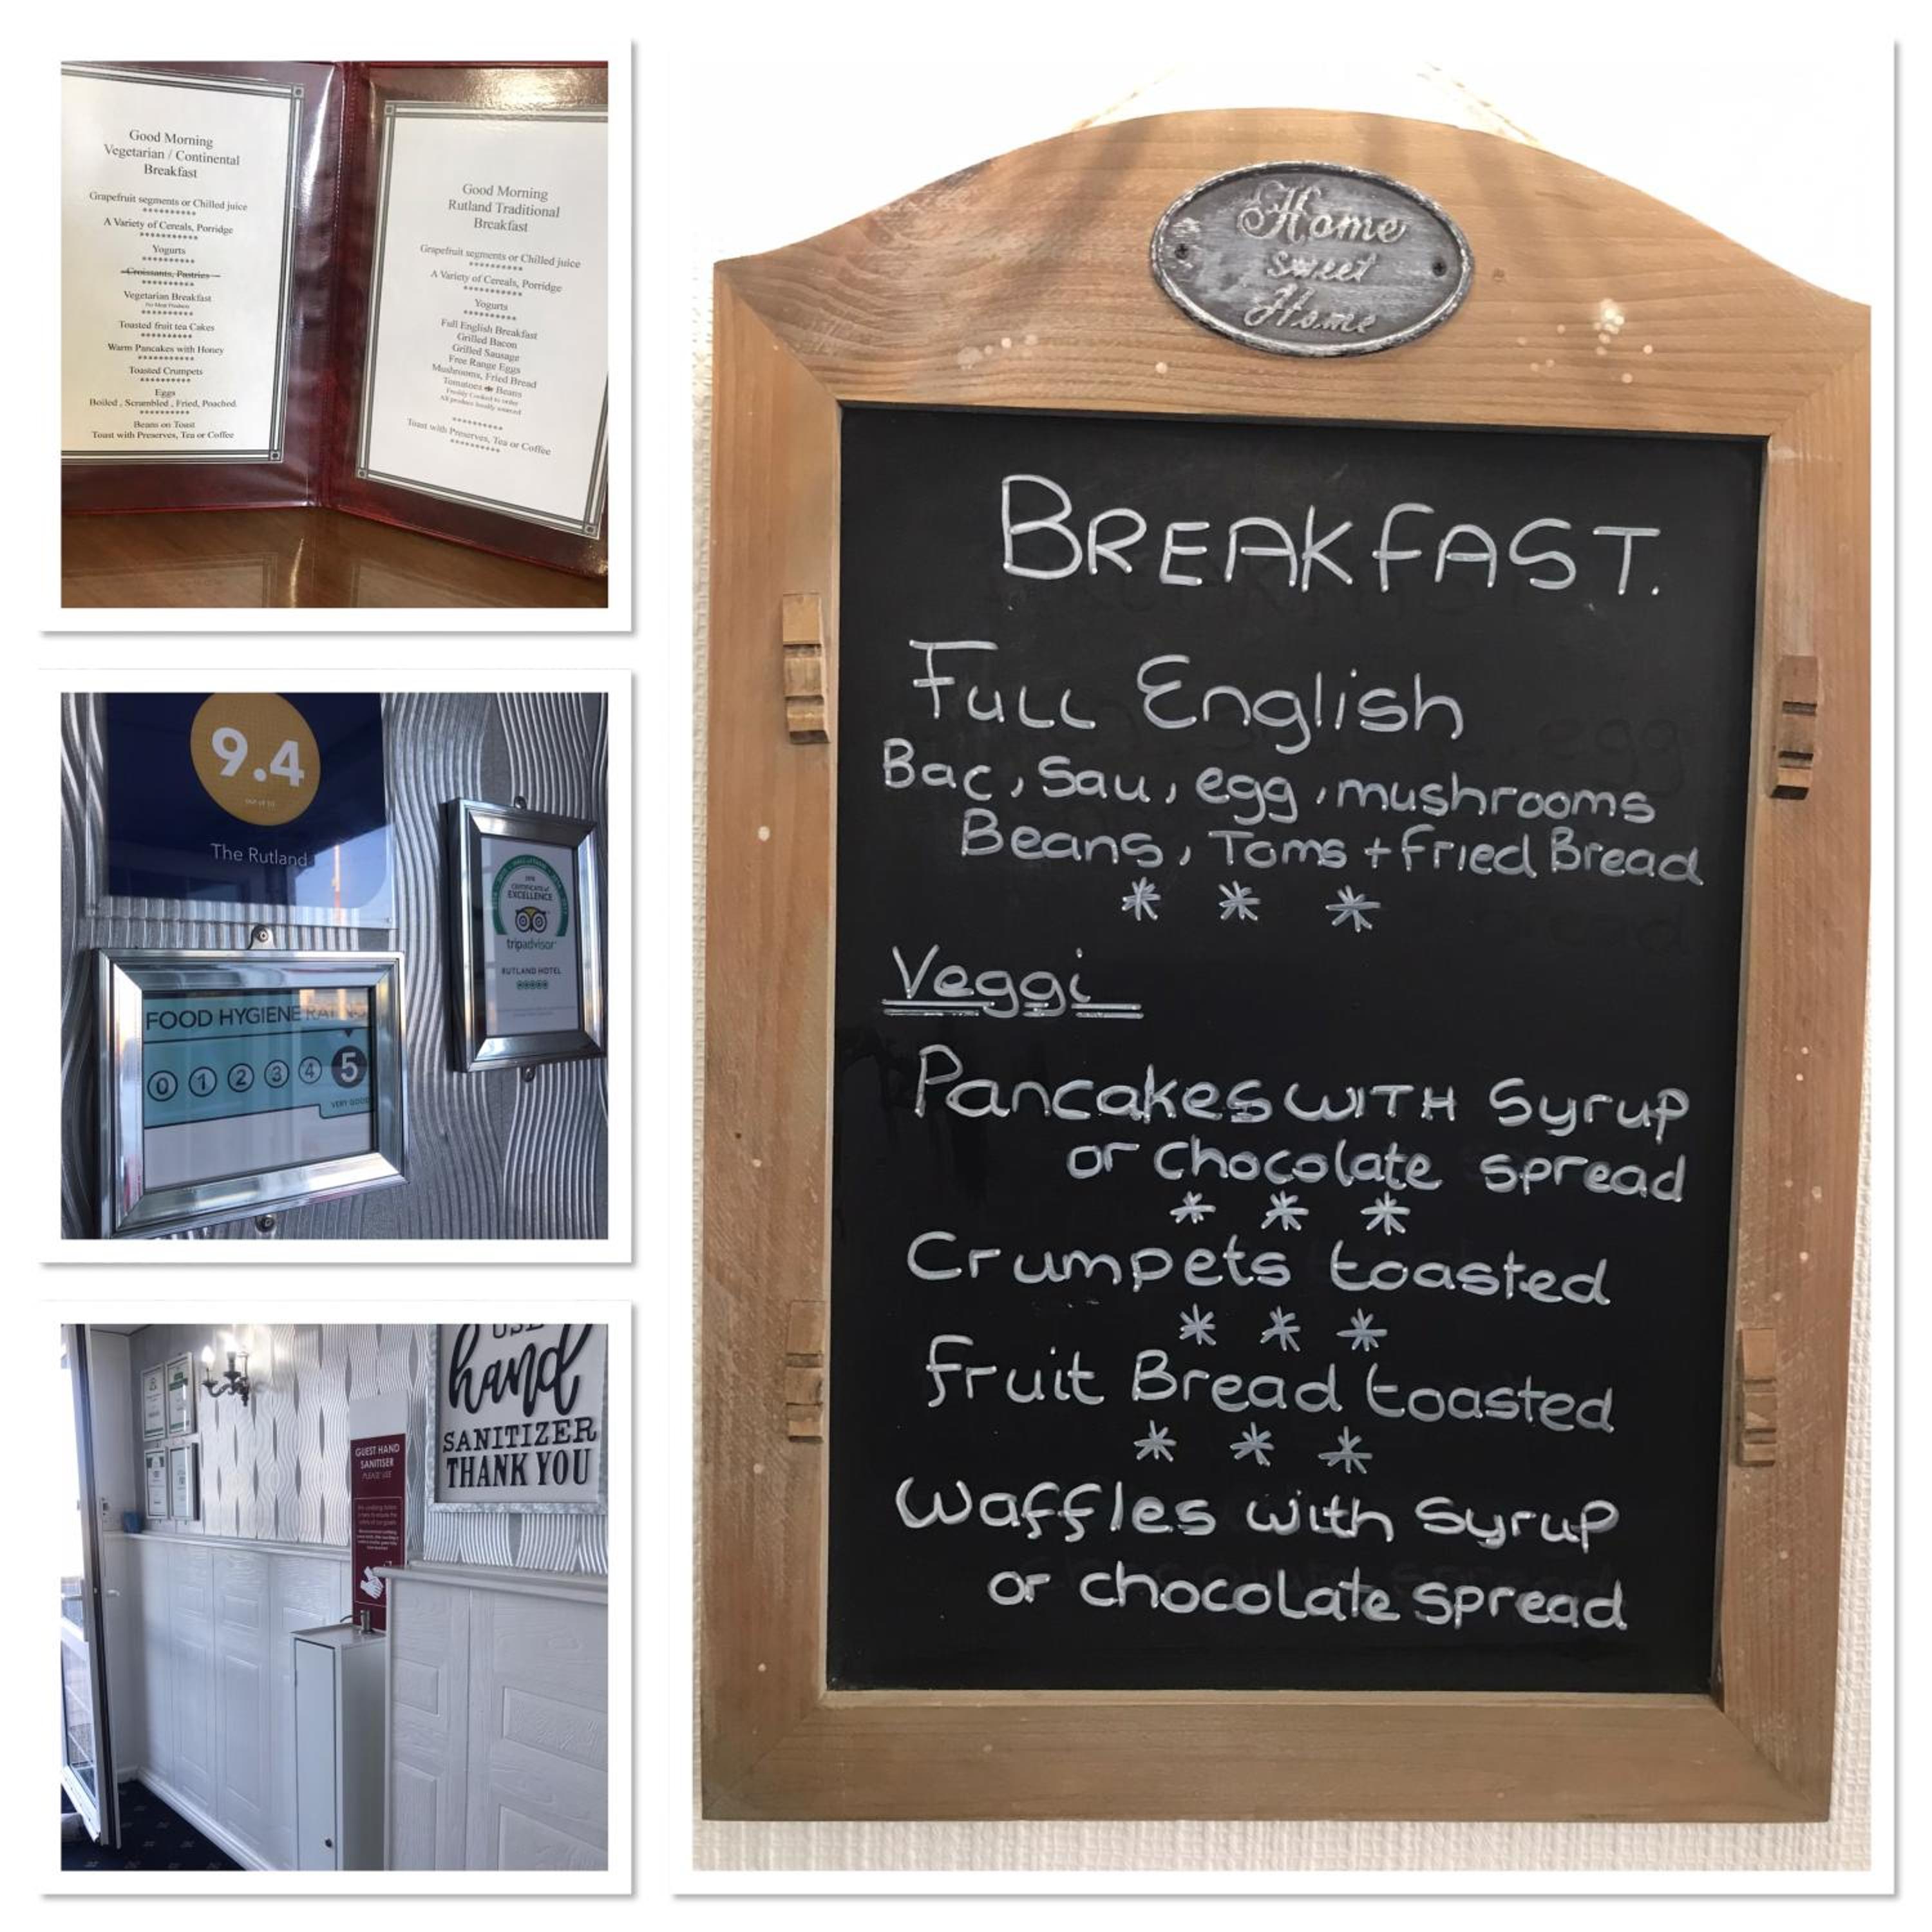 Good Morning
Vegetarian / Continental
Breakfast
Grapefruit segments or Chilled juice
**********
A Variety of Cereals, Porridge
***********
Yogurts
**********
Croissants, Pastries
**********
Vegetarian Breakfast
No Meat Products
**********
Toasted fruit tea Cakes
**********
Warm Pancakes with Honey
***********
Toasted Crumpets
**********
Eggs
Boiled , Scrambled , Fried, Poached
**********
Beans on Toast
Toast with Preserves, Tea or Coffee
Good Morning
Rutland Traditional
Breakfast
Grapefruit segments or Chilled juice
**********
A Variety of Cereals, Porridge
***********
Yogurts
**********
Full English Breakfast
Grilled Bacon
Grilled Sausage
Free Range Eggs
Mushrooms, Fried Bread
Tomatoes Beans
Freshly Cooked to order
All produce locally sourced
**********
Toast with Preserves, Tea or Coffee
**********
9.4
The Rutland
CERTIFICATE of
EXCELLENCE
tripadvisor
RUTLAND HOTEL
FOOD HYGIENE RATING
0 1 2 3 4 5
VERY GOOD
USE
hand
SANITIZER
THANK YOU
GUEST HAND
SANITISER
PLEASE USE
Home
Sweet
Home
BREAKFAST.
Full English
Bac, Sau, egg, mushrooms
Beans, Toms + Fried Bread
* * *
Veggi
Pancakes WITH Syrup
or chocolate spread
* * *
Crumpets toasted
* * *
Fruit Bread toasted
* * *
Waffles with Syrup
or chocolate spread